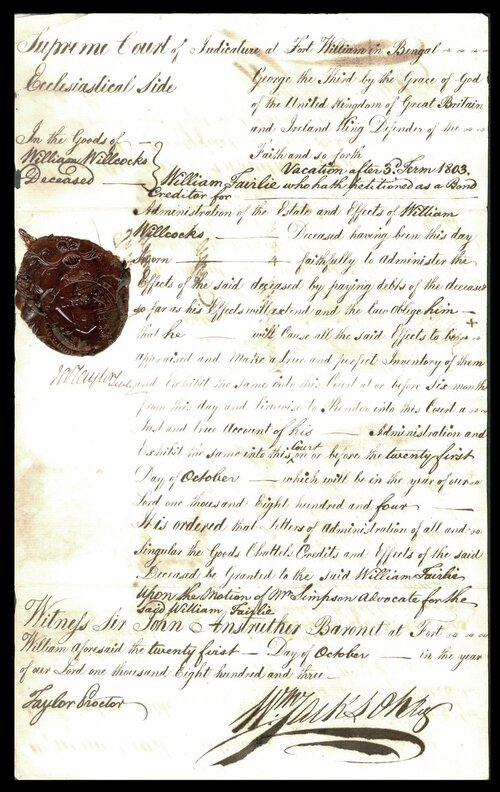 Supreme Court of Judicature at Fort William in Bengal
Ecclesiastical Side
George the Third by the Grace of God
of the United Kingdom of Great Britain
and Ireland King Defender of the
Faith and so forth
In the Goods of
William Willcocks
Deceased
Vacation after 3d. Term 1803.
William Fairlie who hath petitioned as a Bond
Creditor for
Administration of the Estate and Effects of William
Willcocks Deceased having been this day
Sworn faithfully to Administer the
Effects of the said deceased by paying debts of the deceased
so far as his Effects will extend and the law Oblige him
that he will Cause all the said Effects to be
appraised and Make a true and perfect Inventory of them
and Exhibit the same into this Court at or before six months
from this day and likewise to Render into this Court a
Just and true Account of his Administration and
Exhibit the same into this Court on or before the twenty first
Day of October which will be in the year of our
Lord one thousand Eight hundred and four
It is ordered that Letters of Administration of all and
Singular the Goods Chattels Credits and Effects of the said
Deceased be Granted to the said William Fairlie
Upon the Motion of Mr. Simpson Advocate for the
said William Fairlie
Witness Sir John Anstruther Baronet at Fort
William aforesaid the twenty first Day of October in the year
of our Lord one thousand Eight hundred and three
Taylor Proctor
Wm. Jackson